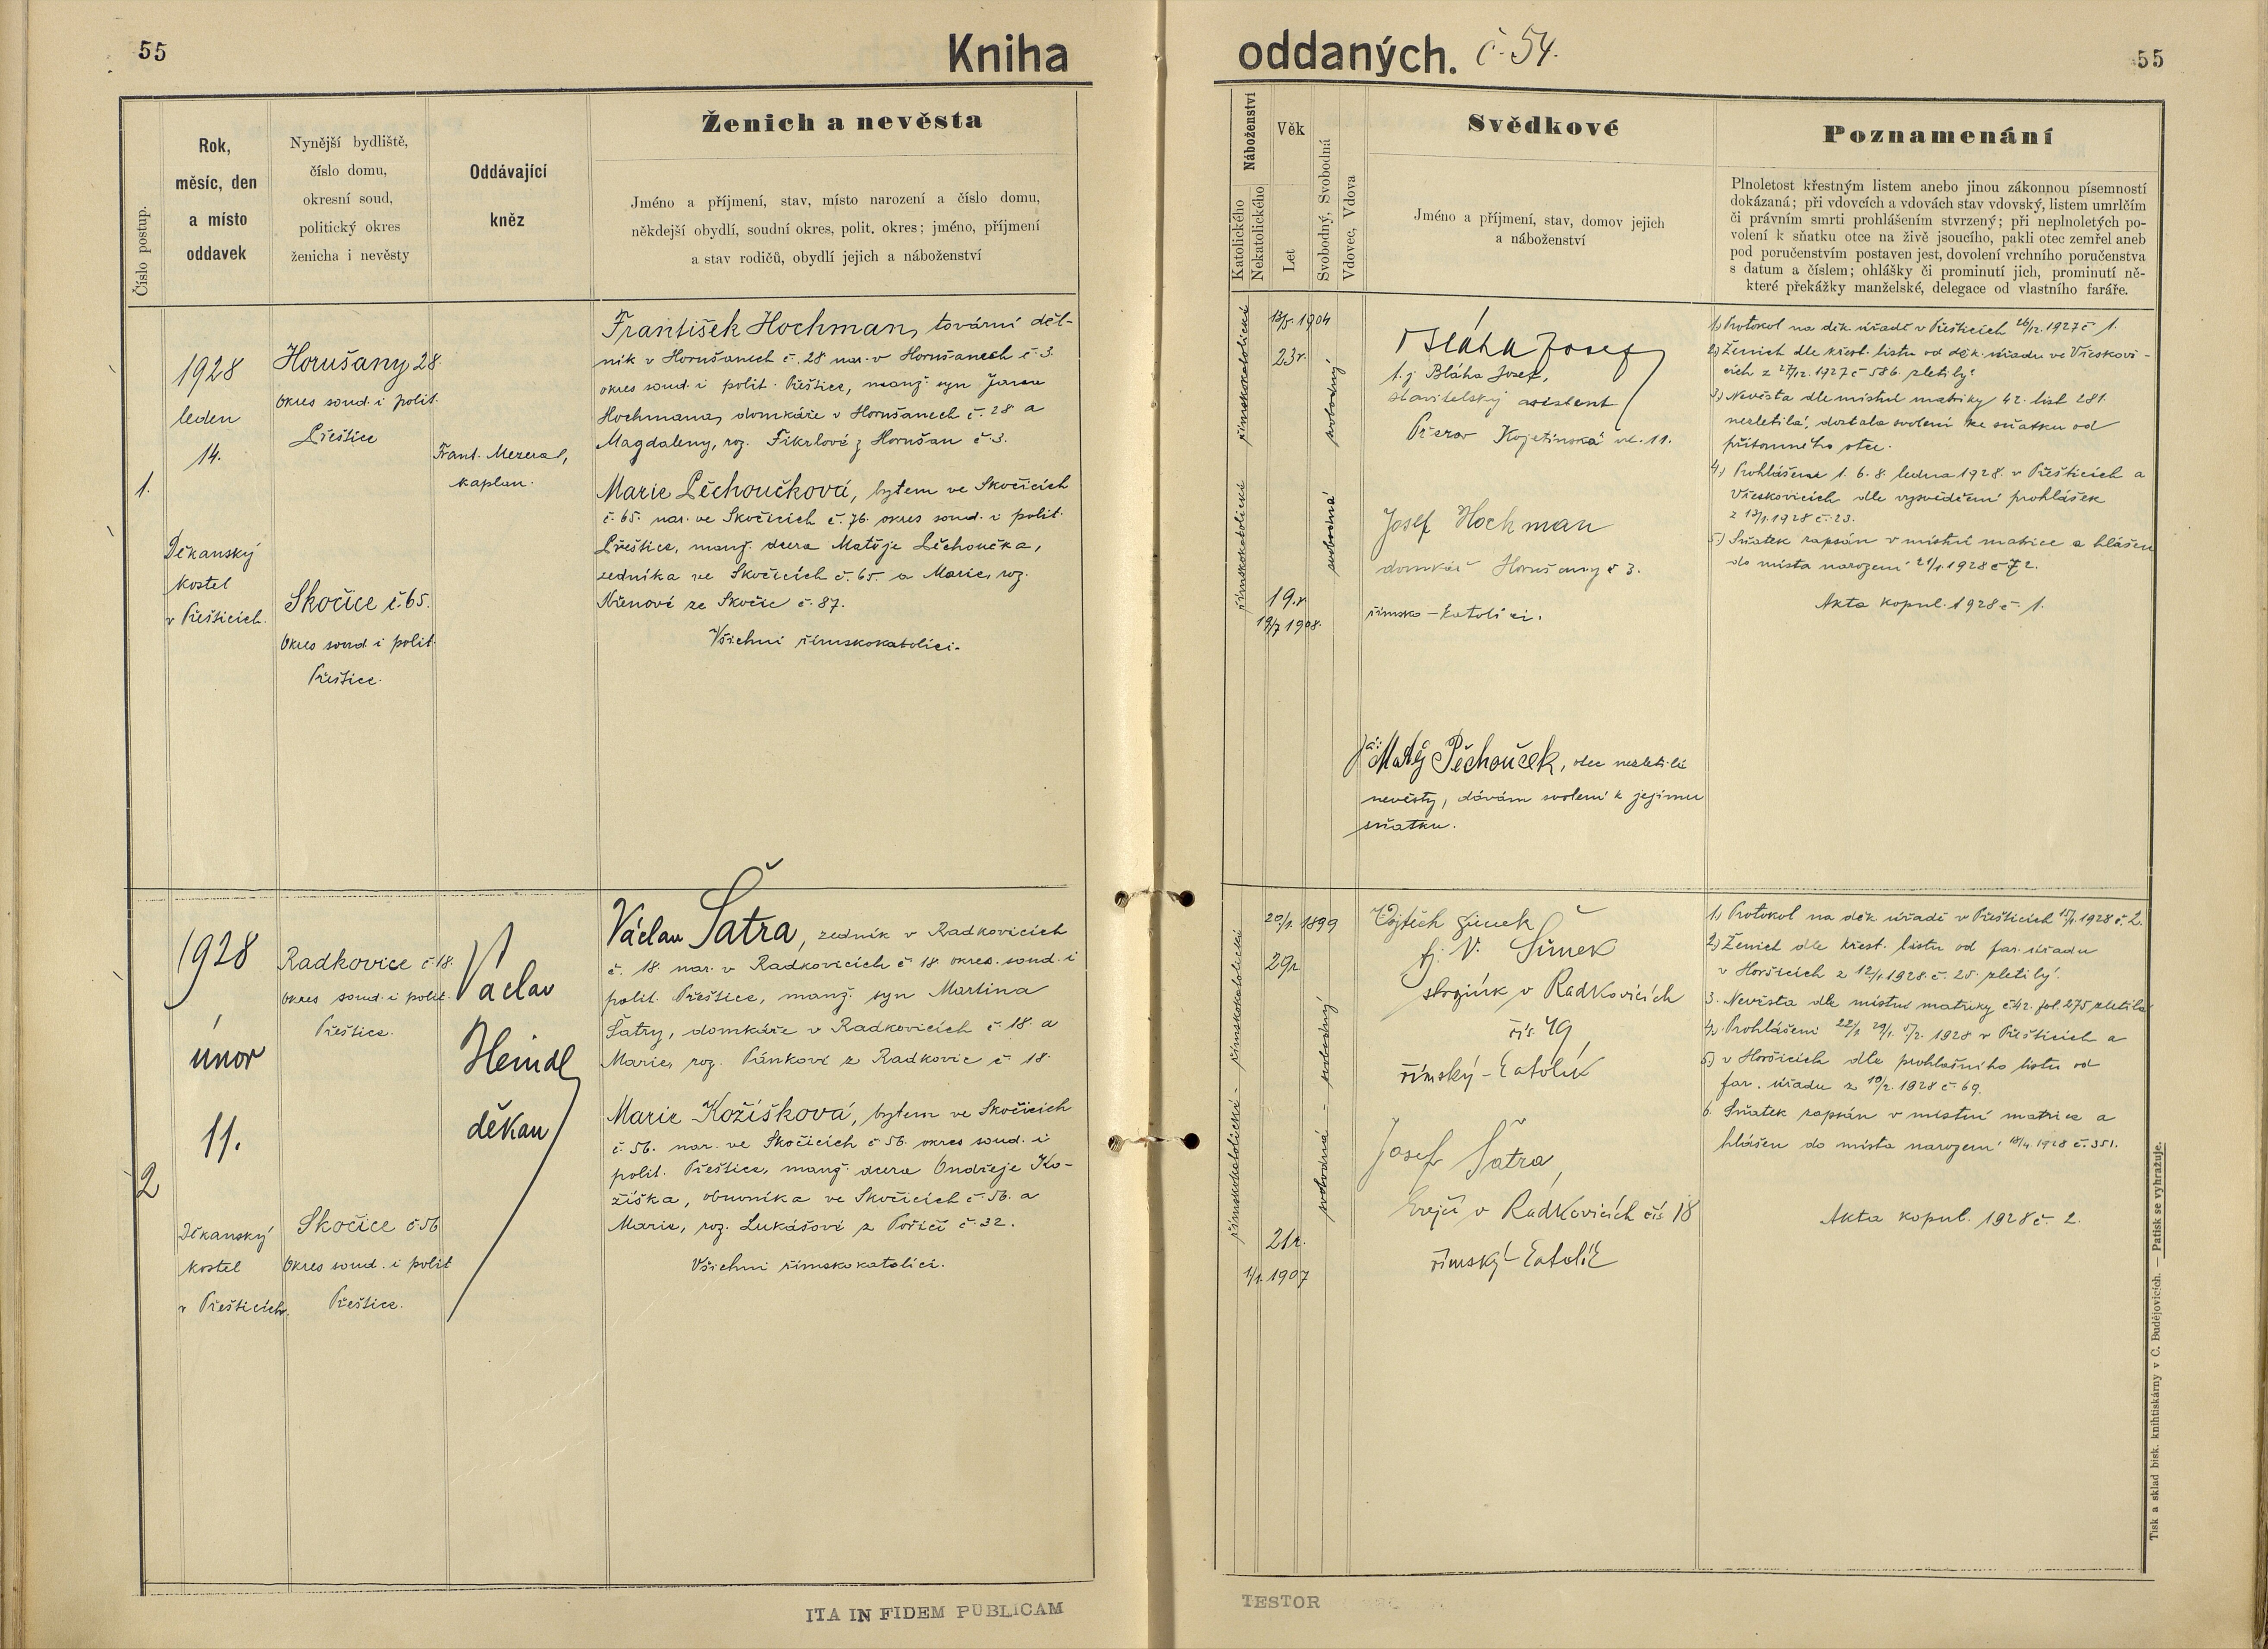 55
Kniha
Číslo postup.
Rok,
měsíc, den
a místo
oddavek
Nynější bydliště,
číslo domu,
okresní soud,
politický okres
ženicha i nevěsty
Oddávající
kněz
Ženich a nevěsta
Jméno a příjmení, stav, místo narození a číslo domu,
někdejší obydlí, soudní okres, polit. okres; jméno, příjmení
a stav rodičů, obydlí jejich a náboženství
1.
1928
leden
14.
Děkanský
kostel
v Přešticích.
Horušany 28.
Okres soud. i polit.
Přeštice
Skočice č. 65.
Okres soud. i polit.
Přeštice.
Frant. Mezeral,
kaplan.
František Hochman, tovární děl-
ník v Horušanech č. 28 nar. v Horušanech č. 3.
okres soud. i polit. Přeštice, manž. syn Jana
Hochmana, domkáře v Horušanech č. 28 a
Magdaleny, roz. Fikrlové z Horušan č. 3.
Marie Pěchoučková, bytem ve Skočicích
č. 65. nar. ve Skočicích č. 76. okres soud. i polit.
Přeštice, manž. dcera Matěje Pěchoučka,
zedníka ve Skočicích č. 65. a Marie, roz.
ze Skočic č. 87.
Všichni římskokatolíci.
2
1928
únor
11.
Děkanský
kostel
v Přešticích.
Radkovice č. 18.
Okres soud. i polit.
Přeštice.
Skočice č 56
Okres soud. i polit
Přeštice.
Václav
Heindl
děkan
Václav Šatra, zedník v Radkovicích
č. 18. nar. v Radkovicích č. 18. okres. soud. i
polit. Přeštice, manž. syn Martina
Šatry, domkáře v Radkovicích č. 18. a
Marie, roz. Pánkové z Radkovic č. 18.
Marie Kožíšková, bytem ve Skočicích
č. 56. nar. ve Skočicích č 56. okres soud. i
polit. Přeštice, manž. dcera Ondřeje Ko-
žíška, obuvníka ve Skočicích č. 56. a
Marie, roz. Lukášové z Poříčí č. 32.
Všichni římskokatolíci.
ITA IN FIDEM PUBLICAM
oddaných. č. 54.
55
Náboženství
Katolického
Nekatolického
Věk
Let
Svobodný, Svobodná
Vdovec, Vdova
Svědkové
Jméno a příjmení, stav, domov jejich
a náboženství
Poznamenání
Plnoletost křestným listem anebo jinou zákonnou písemností
dokázaná; při vdovcích a vdovách stav vdovský, listem umrlčím
či právním smrti prohlášením stvrzený; při neplnoletých po-
volení k sňatku otce na živě jsoucího, pakli otec zemřel aneb
pod poručenstvím postaven jest, dovolení vrchního poručenstva
s datum a číslem; ohlášky či prominutí jich, prominutí ně-
které překážky manželské, delegace od vlastního faráře.
římskokatolické římskokatolické
1904
23r.
19.r
19/7 1908.
svobodná svobodný
Bláha Josef
t. j Bláha Josef,
stavitelský asistent
Přerov Kojetínská ul. 11.
Josef Hochman
domkář Horušany č 3.
římsko-katolíci.
Já: Matěj Pěchouček, otec nezletilé
nevěsty, dávám svolení k jejímu
sňatku.
1.) Protokol na děk. úřadě v Přešticích 26/12. 1927 č 1.
2.) Ženich dle křest. listu od děk. úřadu ve Vřeskovi-
cích z 27/12. 1927 č 586. zletilý.
3.) Nevěsta dle místní matriky 42. list 281.
nezletilá, dostala svolení ke sňatku od
přítomného otce.
4.) Prohlášeni 1. 6. 8. ledna 1928. v Přešticích a
Vřeskovicích dle vysvědčení prohlášek
z 13/1. 1928 č. 23.
5.) Sňatek zapsán v místní matrice a hlášen
do místa narození 21/1. 1928 č 72.
Akta kopul. 1928 č. 1.
římskokatolické - římskokatolické
20/1. 1899
29r
21r.
1/1. 1907
svobodná - svobodný
Vojtěch Šimek
tj. V. Šimek
strojník v Radkovicích
čís. 49,
římský-katolík
Josef Šatra,
krejčí v Radkovicích čís 18
římský-katolík
1.) Protokol na děk úřadě v Přešticích 15/1. 1928 č. 2.
2.) Ženich dle křest. listu od far. úřadu
v Horšicích z 12/1. 1928. č. 25. zletilý.
3. Nevěsta dle místní matriky č. 42. fol. 275 zletilá
4.) Prohlášeni 22/1. 29/1. 5/2. 1928 v Přešticích a
5.) v Horšicích dle prohlašního listu od
far. úřadu z 10/2. 1928 č. 69.
6. Sňatek zapsán v místní matrice a
hlášen do místa narození 18/4. 1928 č. 351.
Akta kopul. 1928 č. 2.
Tisk a sklad bisk. knihtiskárny v C. Budějovicích. — Patisk se vyhražuje.
TESTOR